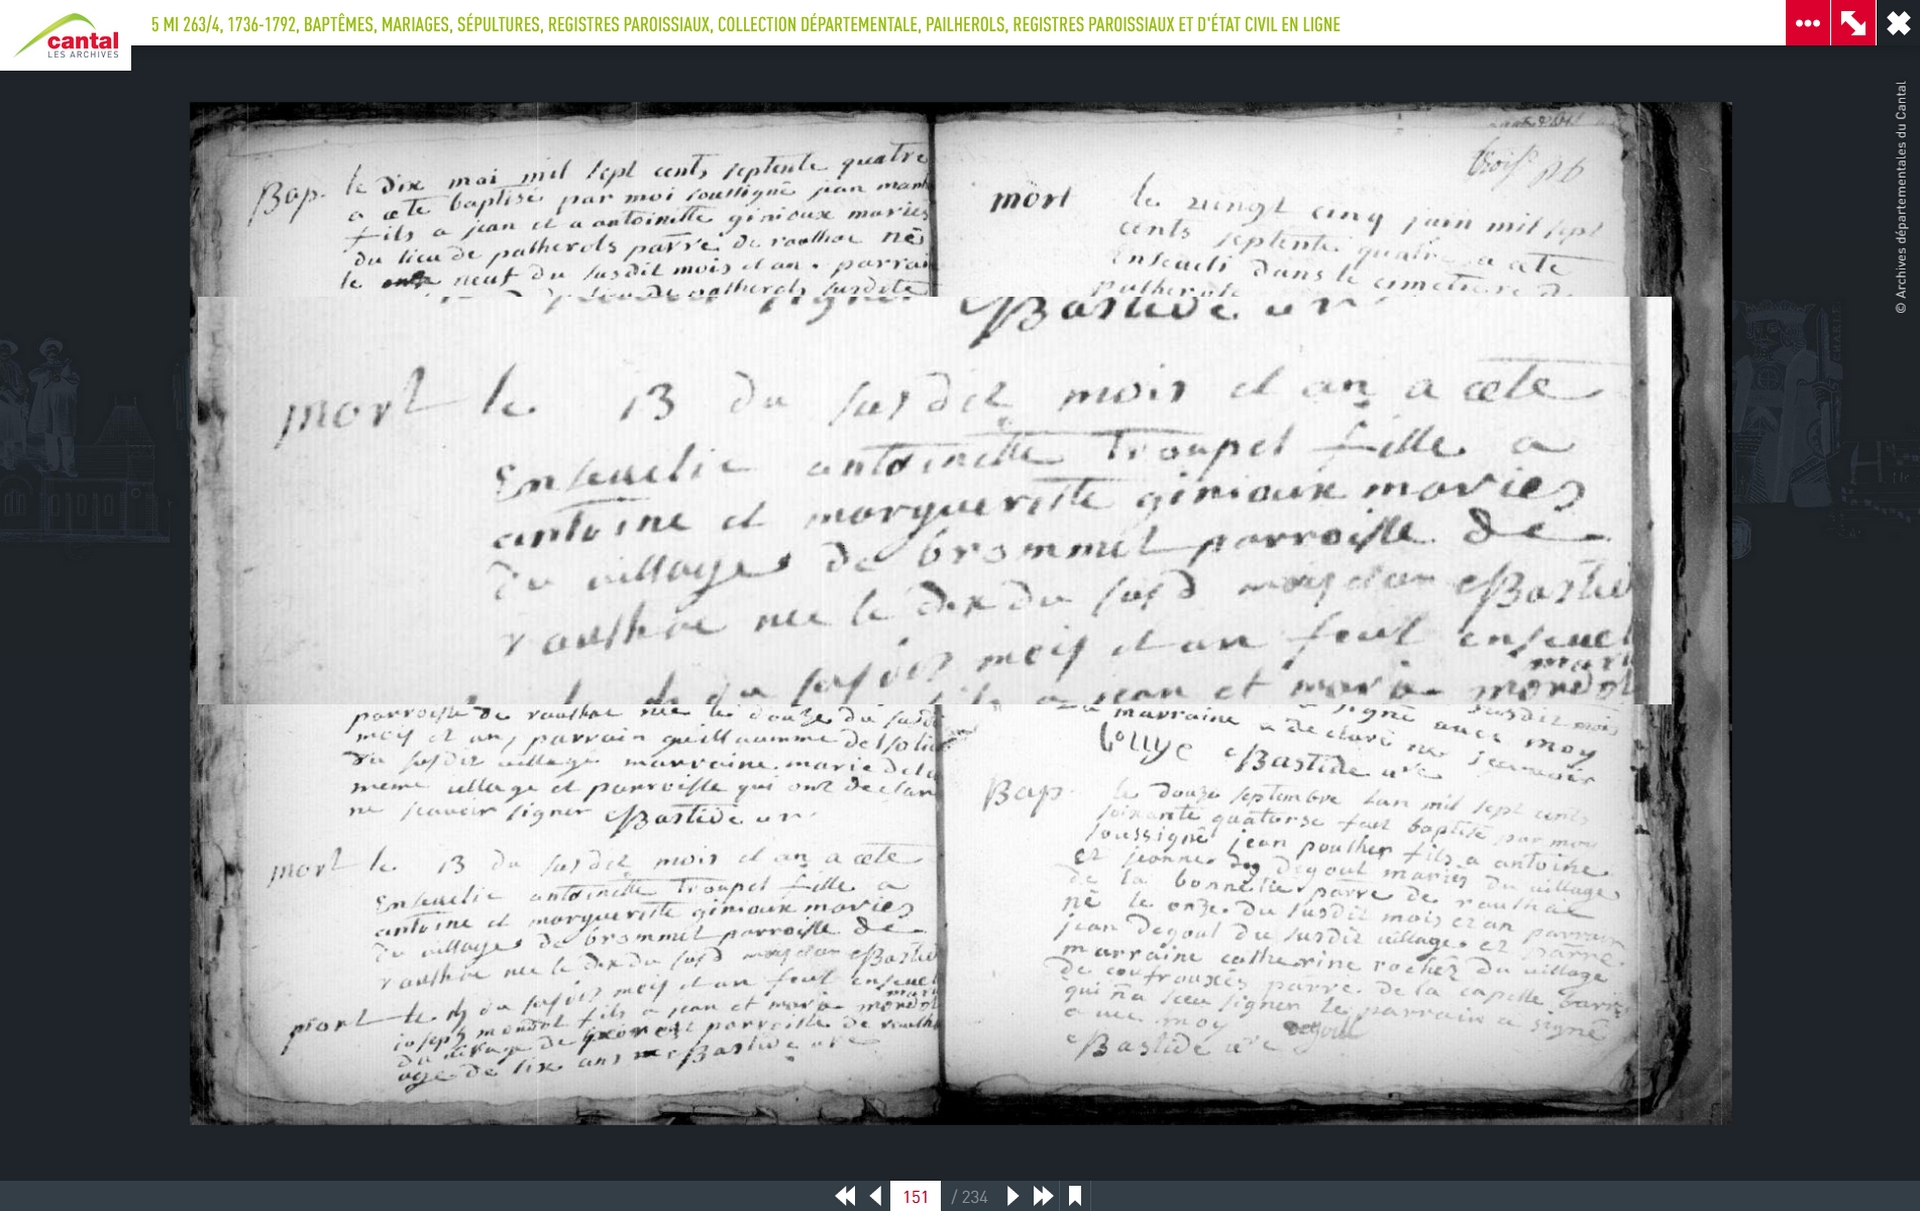 cantal
LES ARCHIVES
5 MI 263/4, 1736-1792, BAPTÊMES, MARIAGES, SÉPULTURES, REGISTRES PAROISSIAUX, COLLECTION DÉPARTEMENTALE, PAILHEROLS, REGISTRES PAROISSIAUX ET D'ÉTAT CIVIL EN LIGNE
© Archives départementales du Cantal
Bap. le dix mai mil sept cents septente quatre
a ete baptisé par moi soussigné jean
fils a jean et a antoinette ginioux maries
du lieu de palherols parre de raulhac né
le neuf du susdit mois et an . parrai
du lieu de palherols susdite
mort le vingt cinq juin mil sept
cents septente quatre a ete
Enseveli dans le cimetiere de
palherols
Bastide
mort le 13 du susdit mois et an a ete
Ensevelie antoinette Troupel fille a
antoine et margueritte ginioux maries
du village de brommet parroisse de
raulhac nee le dix du susd mois et an Bastid
susdit mois et an feut ensevel
a jean et marie
parroisse de raulhac nee le douze du susdi
mois et an, parrain guillaumme del
du susdit village marraine marie
meme village et parroisse qui ont declare
ne scavoir signer Bastide
mort le 13 du susdit mois et an a ete
Ensevelie antoinette Troupel fille a
antoine et margueritte ginioux maries
du village de brommet parroisse de
raulhac nee le dix du susd mois et an Bastid
mort le du susdit mois et an feut ensevel
joseph fils a jean et marie
du village de parroisse de raulha
age de six ans Bastide
marraine signé susdit mois
a declaré ne avec moy
Bastide scavoir
Bap. le douze septembre lan mil sept cents
soixante quatorse feut baptisé par moi
soussigné jean poulher fils a antoine
et jeanne degoul maries du village
de la bonnetie parre de raulhac
né le onze du susdit mois et an parrain
jean degoul du susdit village et parre
marraine catherine rochés du village
de parre de la capelle barrés
qui na sceu signer le parrain a signé
avec moy degoul
Bastide
151 / 234